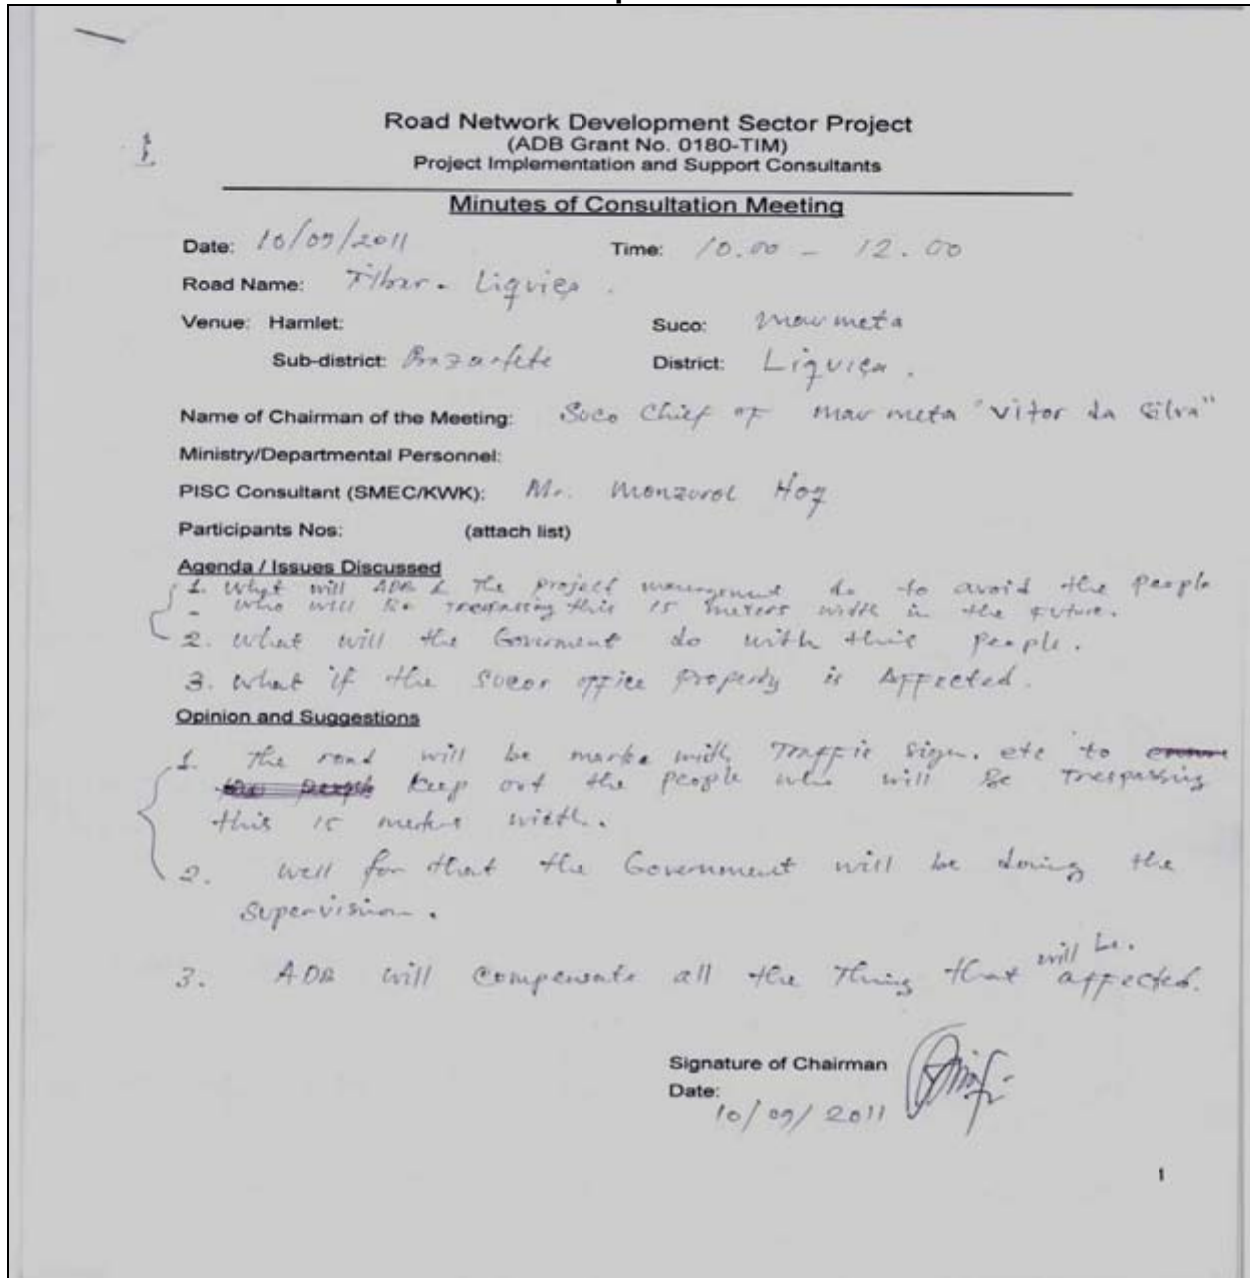 Road Network Development Sector Project
(ADB Grant No. 0180-TIM)
Project Implementation and Support Consultants
Minutes of Consultation Meeting
Date: 10/09/2011 Time: 10.00 - 12.00
Road Name: Tibar - Liquiça .
Venue: Hamlet: Suco: Maumeta
Sub-district: Bazartete District: Liquiça .
Name of Chairman of the Meeting: Soco Chief of maumeta "Vitor da Silva"
Ministry/Departmental Personnel:
PISC Consultant (SMEC/KWK): Mr. Monzurol Hoq
Participants Nos: (attach list)
Agenda / Issues Discussed
1. What will ADB & The project management do to avoid the people
- who will be trespassing this 15 meters width in the future.
2. what will the Goverment do with this people.
3. what if the sucor office property is Affected.
Opinion and Suggestions
1. The road will be marke with Traffic sign. etc to
keep out the people who will be Trespassing
this 15 meters width.
2. well for that the Government will be doing the
supervision.
3. ADB will compensate all the Thing that will be.
affected.
Signature of Chairman
Date:
10/09/2011
1